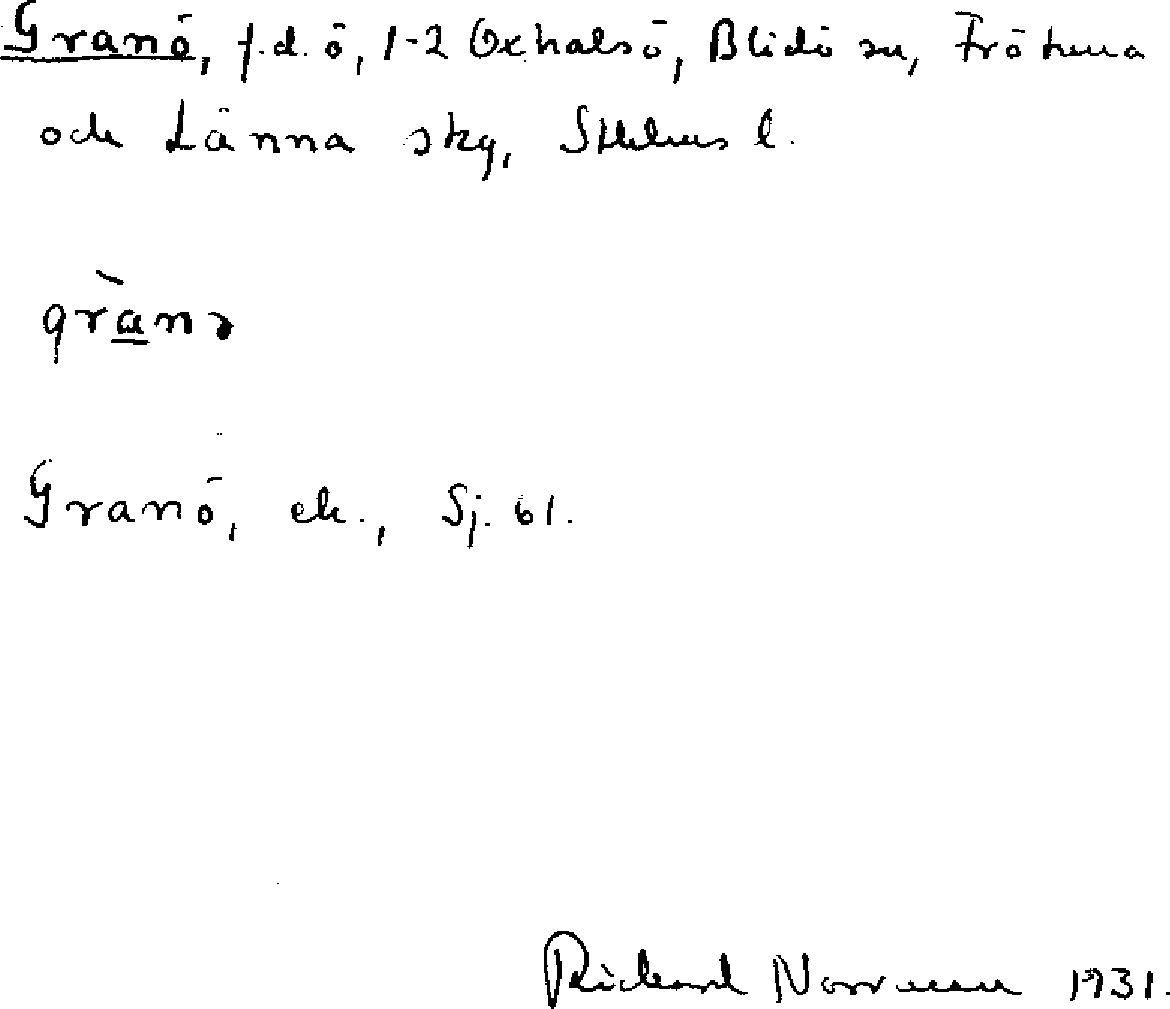 Granö, f.d. ö, 1-2 Oxhalsö, Blidö sn, Frötuna
och Länna skg, Sthlms l.
grànə
Granö, ek., Sj. 61.
Rickard Norrman 1931.